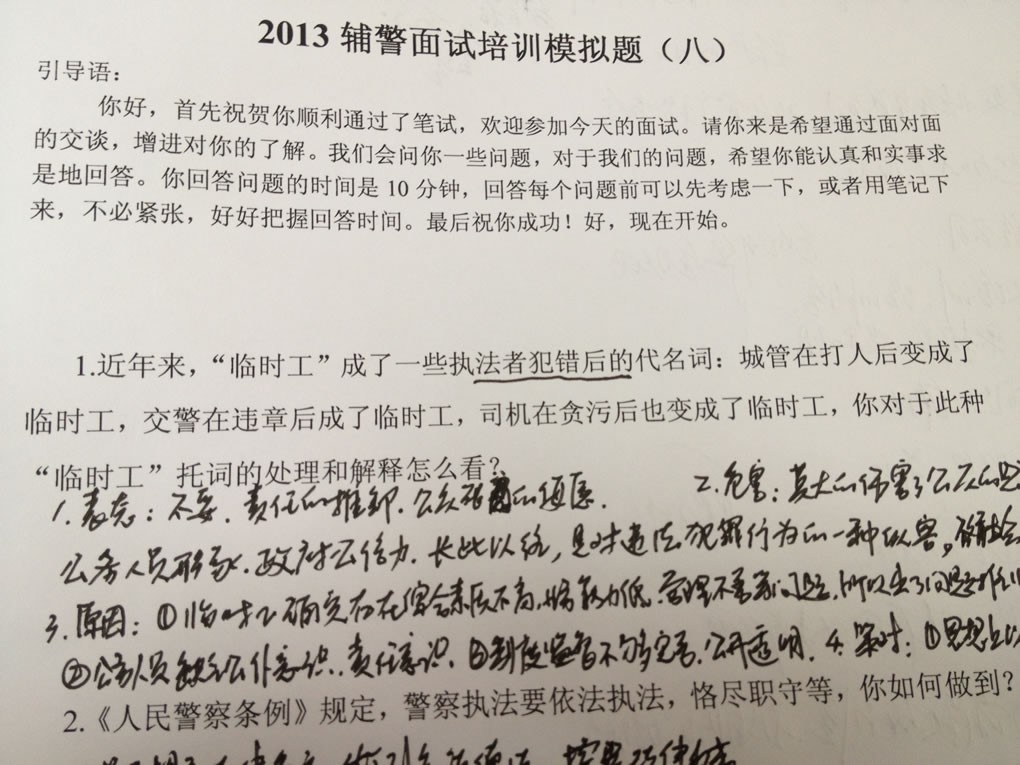 2013 辅警面试培训模拟题（八）
引导语：
你好，首先祝贺你顺利通过了笔试，欢迎参加今天的面试。请你来是希望通过面对面
的交谈，增进对你的了解。我们会问你一些问题，对于我们的问题，希望你能认真和实事求
是地回答。你回答问题的时间是 10 分钟，回答每个问题前可以先考虑一下，或者用笔记下
来，不必紧张，好好把握回答时间。最后祝你成功！好，现在开始。
1.近年来，“临时工”成了一些执法者犯错后的代名词：城管在打人后变成了
临时工，交警在违章后成了临时工，司机在贪污后也变成了临时工，你对于此种
“临时工”托词的处理和解释怎么看？
1. 表态：不妥，责任的推卸，公众 的 2. 危害：莫大的伤害了公众的
公务人员形象、政府公信力，长此以往，是对违法犯罪行为的一种纵容。
3. 原因：①临时工确实存在综合素质不高、能力低、管理不善等问题，所以出了问题
②公务人员缺乏公仆意识、责任意识。③制度监管不够完善、公开透明。4. 策对：①思想上
2.《人民警察条例》规定，警察执法要依法执法，恪尽职守等，你如何做到？